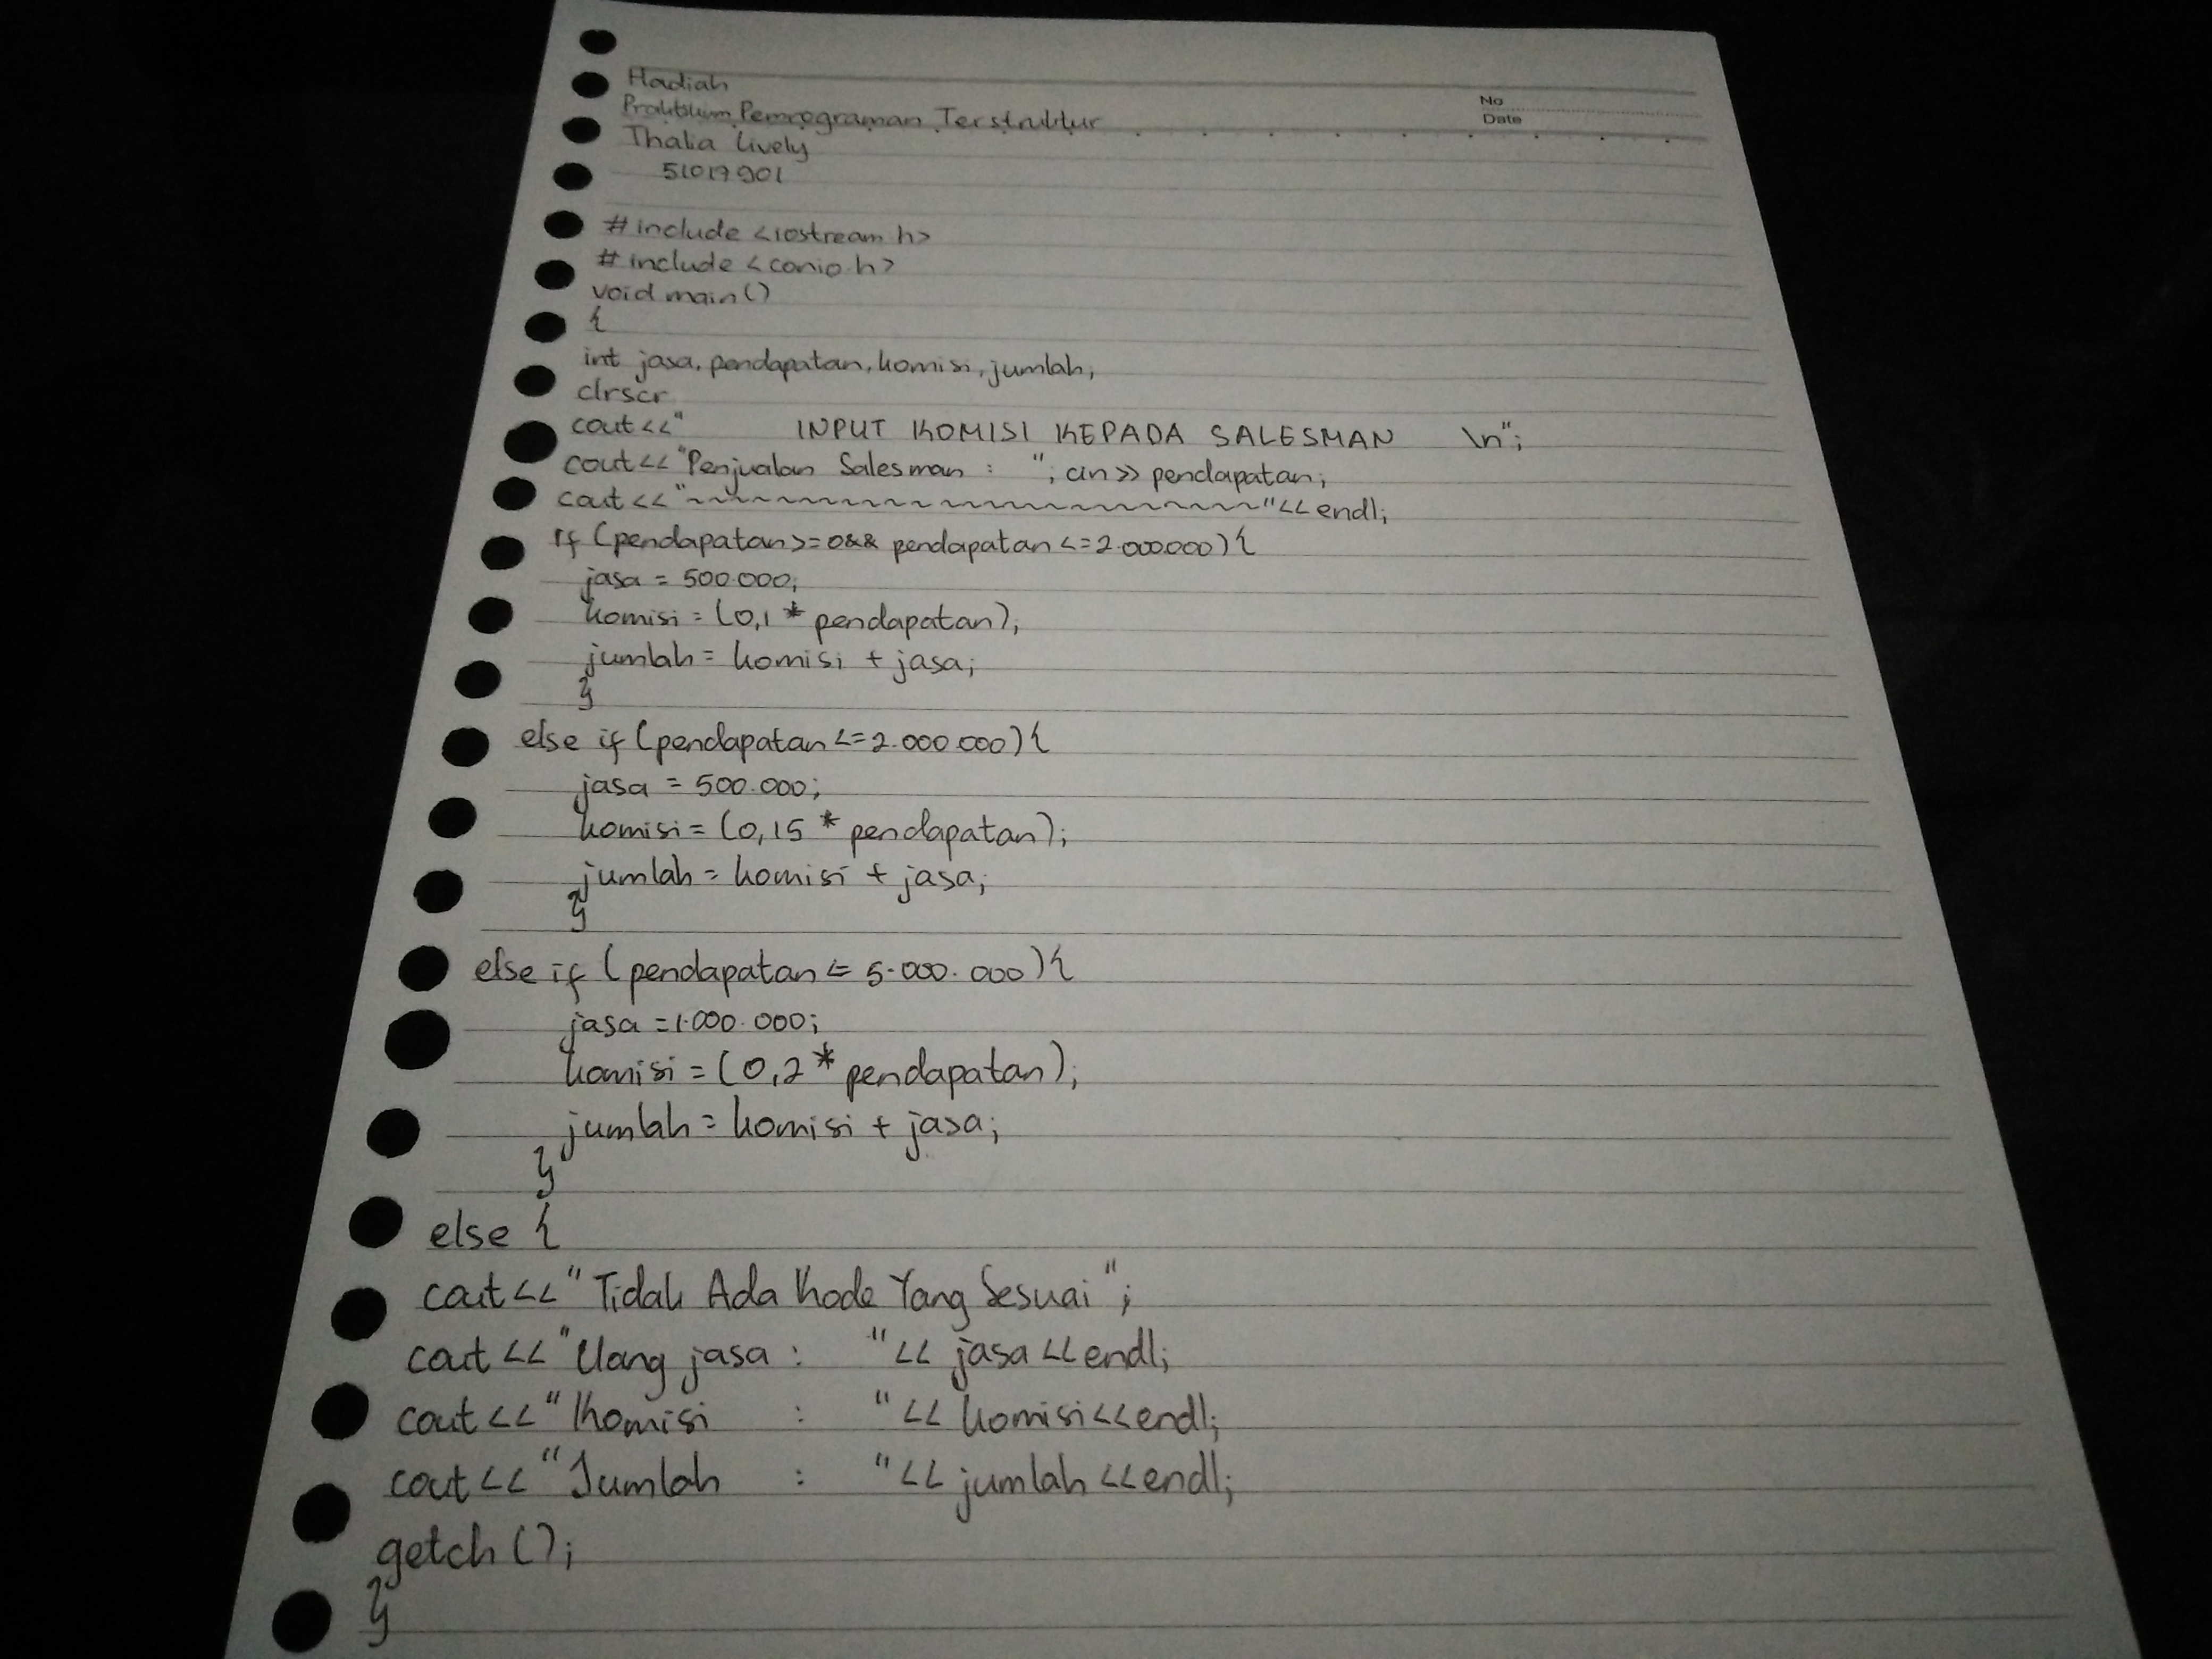 Hadiah
No
Praktikum Pemrograman Terstruktur
Date
Thalia Lively
51017901
# include <iostream.h>
# include <conio.h>
void main()
{
int jasa, pendapatan, komisi, jumlah;
clrscr
cout<<" INPUT KOMISI KEPADA SALESMAN \n";
cout<<"Penjualan Salesman : "; cin>>pendapatan;
cout<<"~~~~~~~~~~~~~~~~~~~~~~~"<<endl;
If (pendapatan>=0&& pendapatan<=2.000.000){
jasa = 500.000;
komisi = (0,1 * pendapatan);
jumlah = komisi + jasa;
}
else if (pendapatan<=2.000.000){
jasa = 500.000;
komisi = (0,15 * pendapatan);
jumlah = komisi + jasa;
}
else if (pendapatan <= 5.000.000){
jasa =1.000.000;
komisi = (0,2 * pendapatan);
jumlah = komisi + jasa;
}
else {
cout<<"Tidak Ada Kode Yang Sesuai";
cout<<"Uang jasa : "<<jasa<<endl;
cout<<"Komisi : "<<komisi<<endl;
cout<<"Jumlah : "<<jumlah<<endl;
getch();
}